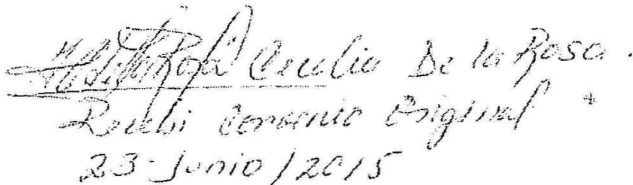 Cecilia De la Rosa.
Recibi Convenio Original +
23-Junio/2015